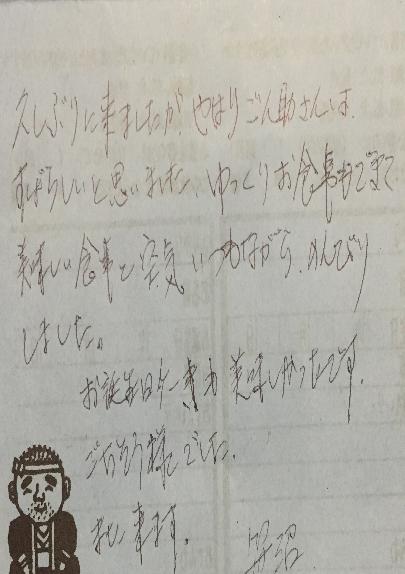 久しぶりに来ましたが やはりごん助さんは、
すばらしいと思いました、ゆっくりお食事もできて
美味しい食事と空気 いつもながら、のんびり
しました。
お誕生日ケーキも美味しかったです。
ごちそう様でした。
また来ます。